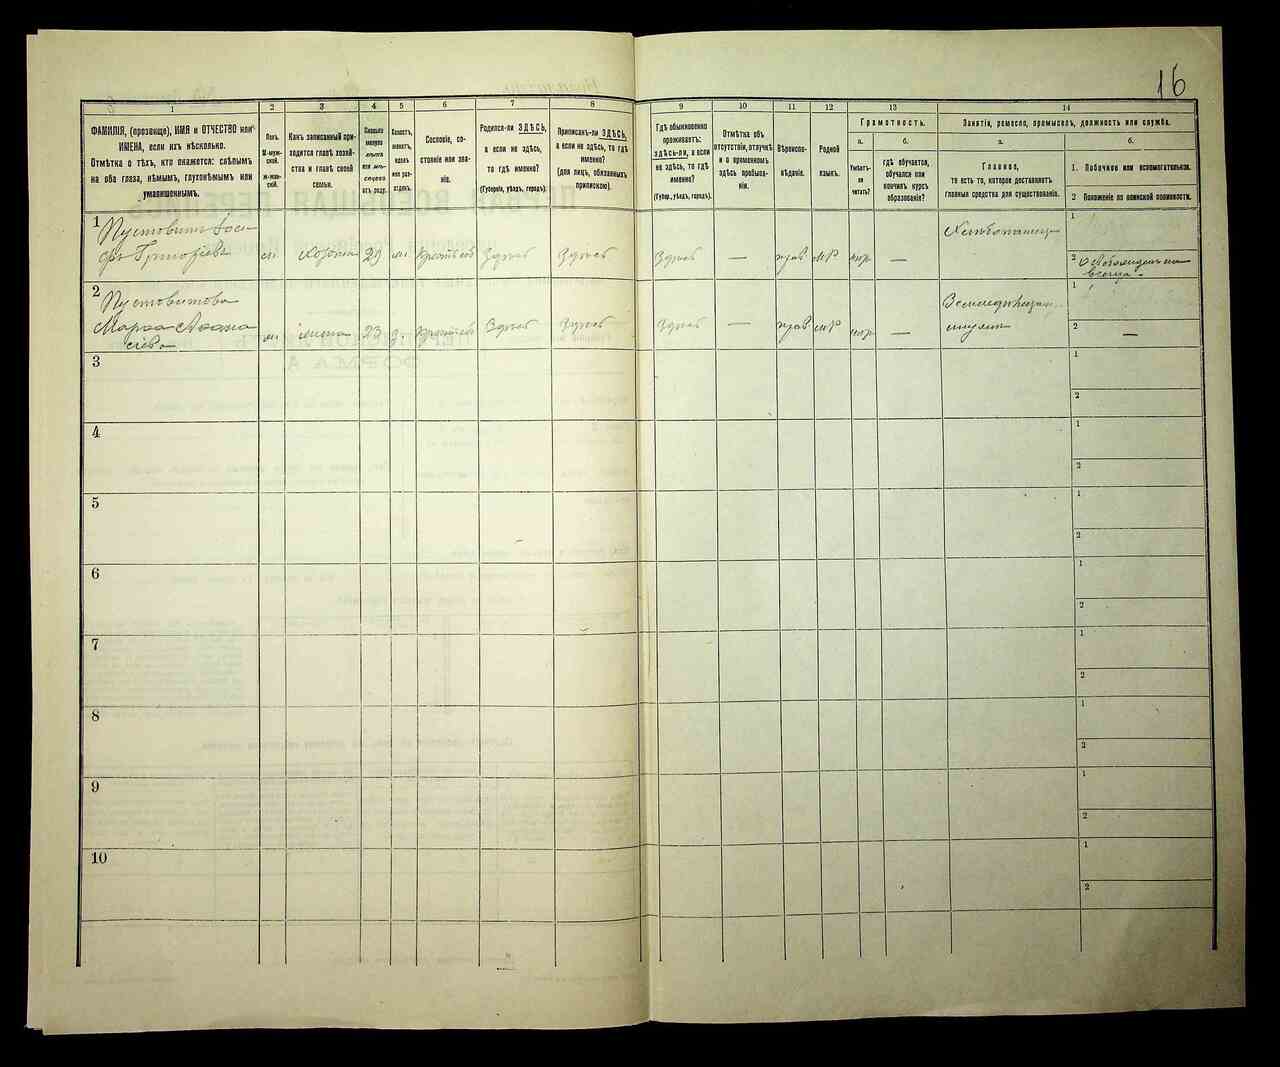 16
1
2
3
4
5
6
7
8
9
10
11
12
13
14
ФАМИЛІЯ, (прозвище), ИМЯ и ОТЧЕСТВО или
ИМЕНА, если ихъ нѣсколько.
Отмѣтка о тѣхъ, кто окажется: слѣпымъ
на оба глаза, нѣмымъ, глухонѣмымъ или
умалишеннымъ.
Полъ.
М-муж-
ской.
Ж-жен-
скій.
Какъ записанный при-
ходится главѣ хозяй-
ства и главѣ своей
семьи.
Сколько
минуло
лѣтъ
или мѣ-
сяцевъ
отъ роду.
Холостъ,
женатъ,
вдовъ
или раз-
веденъ.
Сословіе, со-
стояніе или зва-
ніе.
Родился-ли ЗДѢСЬ,
а если не здѣсь,
то гдѣ именно?
(Губернія, уѣздъ, городъ).
Приписанъ-ли ЗДѢСЬ,
а если не здѣсь, то гдѣ
именно?
(для лицъ, обязанныхъ
припискою).
Гдѣ обыкновенно
проживаетъ:
здѣсь-ли, а если
не здѣсь, то гдѣ
именно?
(Губер., уѣздъ, городъ).
Отмѣтка объ
отсутствіи, отлучкѣ
и о временномъ
здѣсь пребыва-
ніи.
Вѣроиспо-
вѣданіе.
Родной
языкъ.
Грамотность.
а.
б.
Умѣетъ-
ли
читать?
гдѣ обучается,
обучался или
кончилъ курсъ
образованія?
Занятія, ремесло, промыселъ, должность или служба.
а.
б.
Главное,
то есть то, которое доставляетъ
главныя средства для существованія.
1. Побочное или вспомогательное.
2 Положеніе по воинской повинности.
1
Пустовитъ Іоси-
фъ Григорьевъ
м
хозяинъ
29
ж
Крестьян
Здѣсь
Здѣсь
Здѣсь
—
прав
мР
нѣт
—
Хлѣбопашец
1
2
Пустовитова
Марѳа Аѳана
сіева
жена
23
Крестьян
Здѣсь
Здѣсь
Здѣсь
—
прав
мР
—
1
2
—
3
1
2
4
1
2
5
1
2
6
1
2
7
1
2
8
1
2
9
1
2
10
1
2